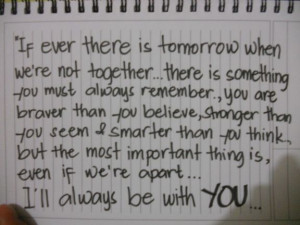 "If ever there is tomorrow when
we're not together... there is something
you must always remember., you are
braver than you believe, stronger than
you seem & smarter than you think,
but the most important thing is,
even if we're apart...
I'll always be with YOU...